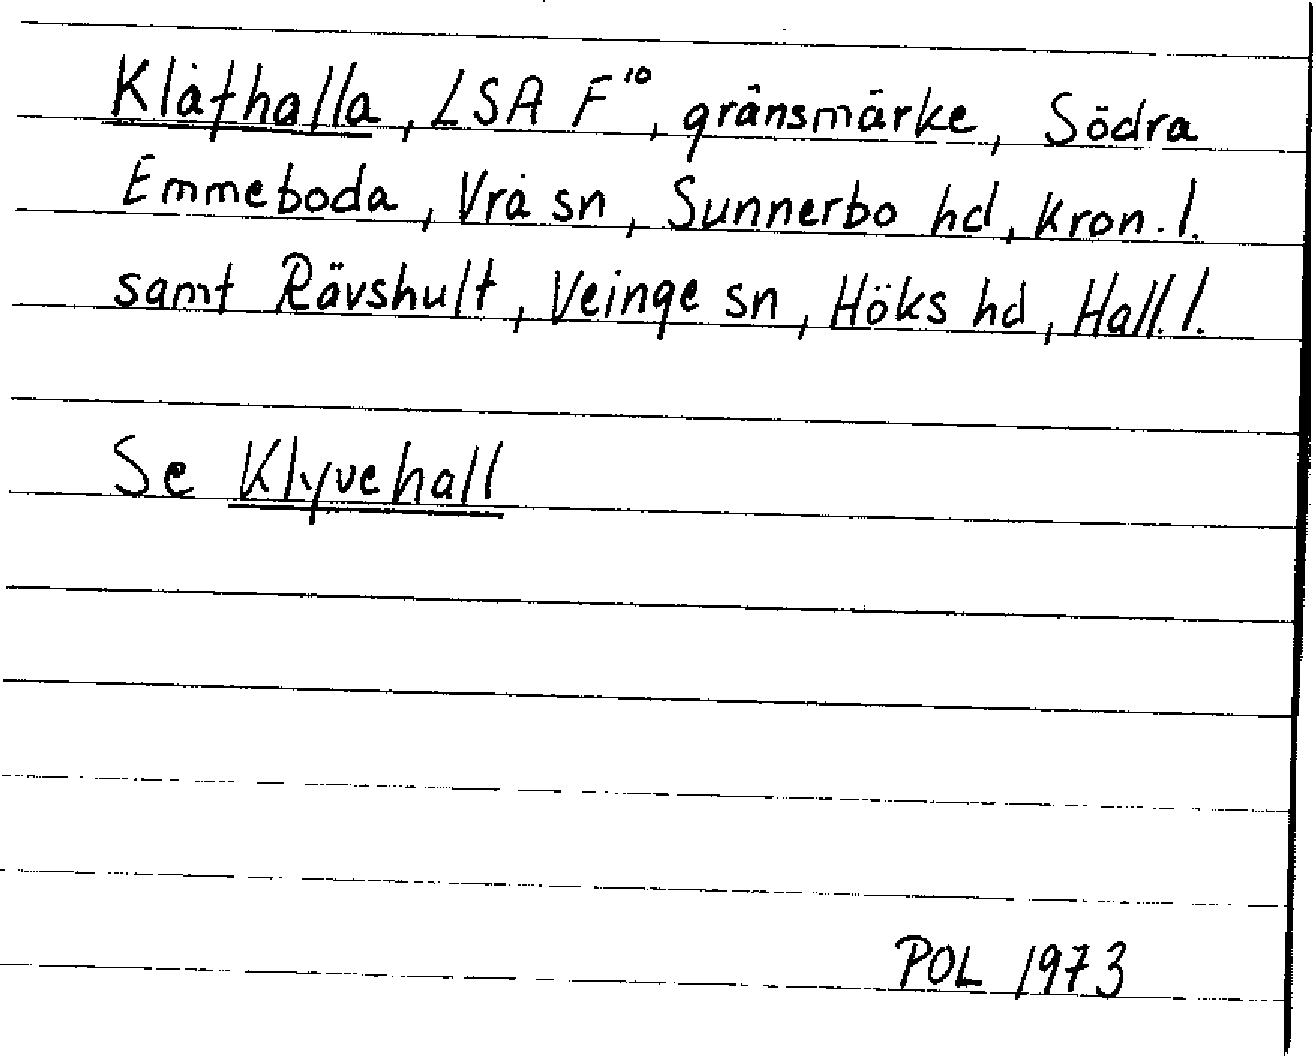 Klåthalla, LSA F¹⁰, gränsmärke, Södra
Emmeboda, Vrå sn, Sunnerbo hd, Kron. l.
samt Rävshult, Veinge sn, Höks hd, Hall. l.
Se Klyvehall
POL 1973